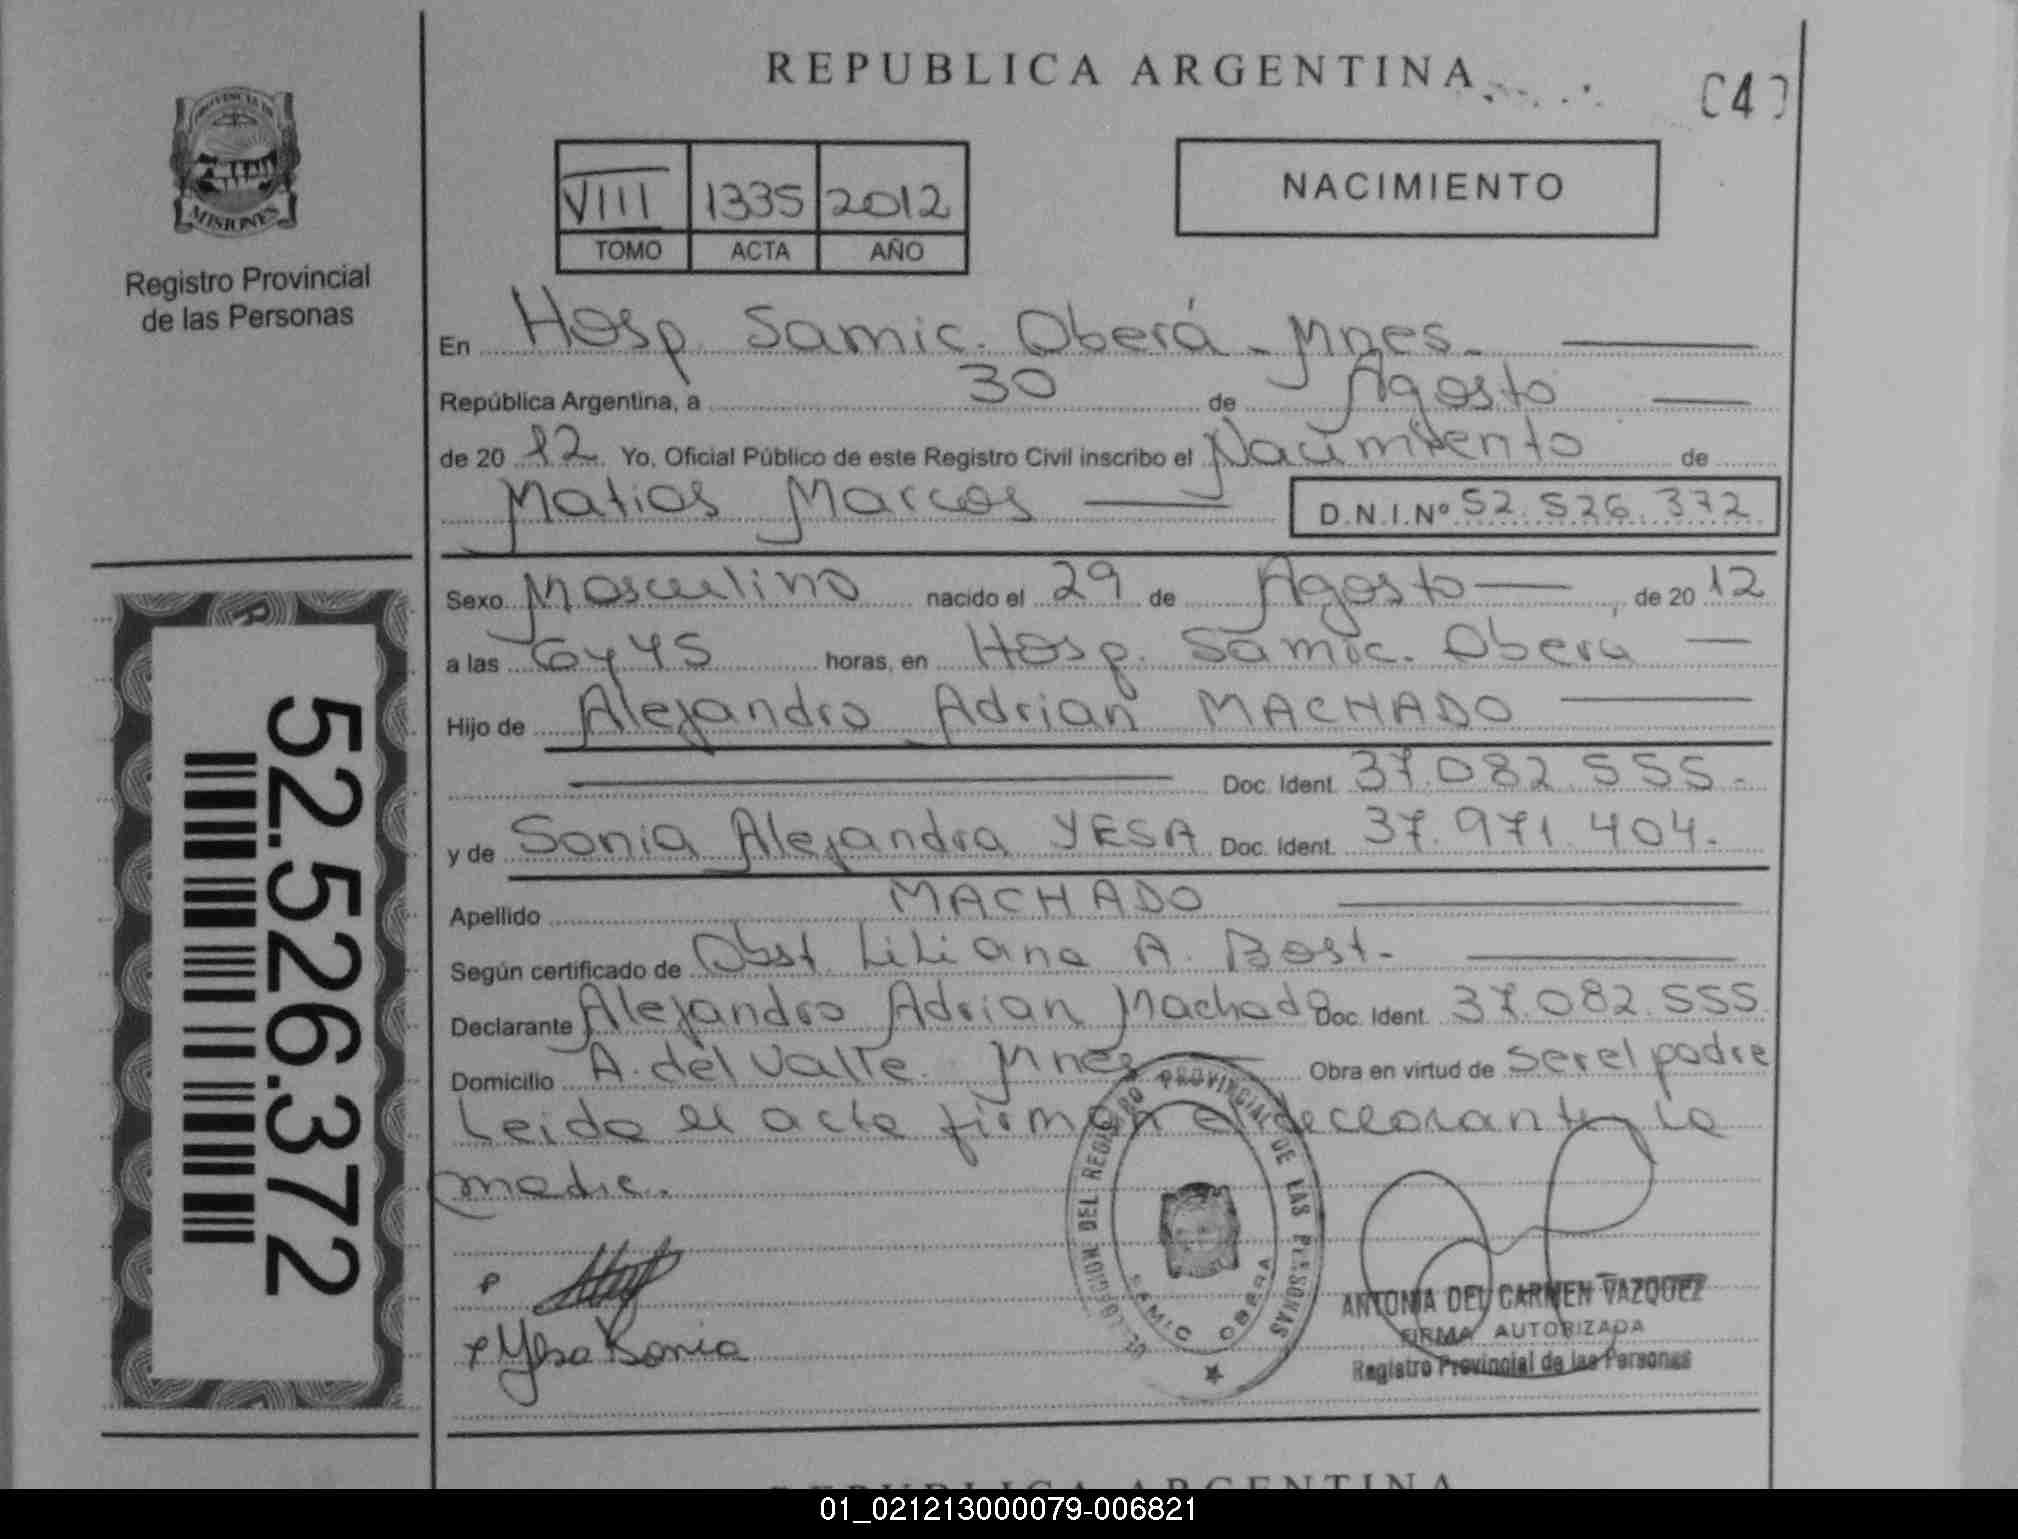 REPUBLICA ARGENTINA
040
PROVINCIA DE
MISIONES
Registro Provincial
de las Personas
VIII 1335 2012
TOMO ACTA AÑO
NACIMIENTO
En Hosp. Samic. Oberá - Mnes.
República Argentina, a 30 de Agosto
de 2012 Yo, Oficial Público de este Registro Civil inscribo el Nacimiento de
Matias Marcos D.N.I.Nº 52.526.372
Sexo Masculino nacido el 29 de Agosto, de 2012
a las 6y45 horas, en Hosp. Samic. Oberá
Hijo de Alejandro Adrian MACHADO
Doc. Ident. 37.082.555.-
y de Sonia Alejandra YESA Doc. Ident. 37.971.404.-
Apellido MACHADO
Según certificado de Obst Liliana A. Bost.-
Declarante Alejandro Adrian Machado Doc. Ident. 37.082.555.
Domicilio A. del Valle. Mnes Obra en virtud de ser el padre
Leida el acta firman el declarante y la
madre.
52.526.372
DELEGACION DEL REGISTRO PROVINCIAL DE LAS PERSONAS
SAMIC OBERA
Yesa Sonia
ANTONIA DEL CARMEN VAZQUEZ
FIRMA AUTORIZADA
Registro Provincial de las Personas
REPUBLICA ARGENTINA
01_021213000079-006821